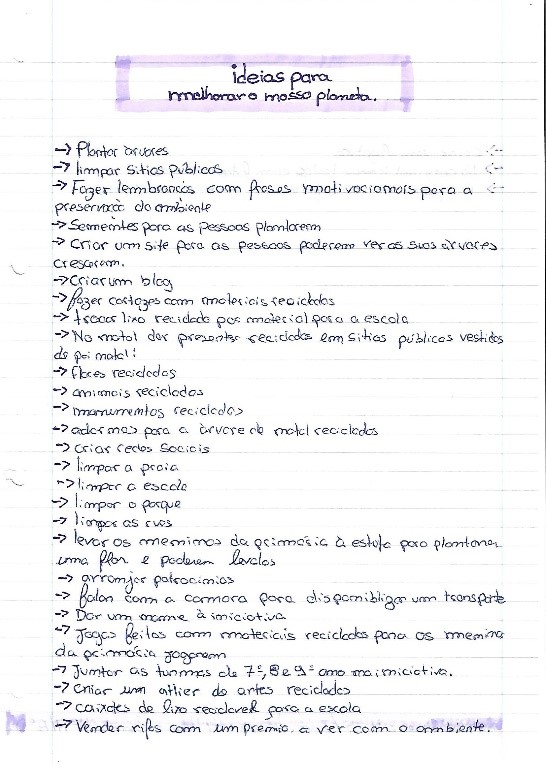 ideias para
melhorar o nosso planeta.
-> Plantar árvores
-> limpar sitios públicos
-> Fazer lembranças com frases motivacionais para a
preservação do ambiente
-> Sementes para as pessoas plantarem
-> Criar um site para as pessoas poderem ver as suas árvores
crescerem.
-> Criar um blog
-> fazer cartazes com materiais reciclados
-> trocar lixo reciclado por material para a escola
-> No natal dar presentes reciclados em sitios públicos vestidos
de pai natal!
-> flores recicladas
-> animais reciclados
-> monumentos reciclados
-> adornos para a árvore de natal reciclados
-> criar redes sociais
-> limpar a praia
-> limpar a escola
-> limpar o parque
-> limpar as ruas
-> levar os meninos da primária à estufa para plantarem
uma flor e poderem levalos
-> arranjar patrocinios
-> falar com a camara para disponibilizar um transporte
-> Dar um nome à iniciativa
-> Jogos feitos com materiais reciclados para os menino
da primária jogarem
-> Juntar as turmas de 7º, 8 e 9º ano na iniciativa.
-> Criar um atlier de artes reciclados
-> caixotes de lixo reciclavel para a escola
-> Vender rifas com um premio a ver com o ambiente.